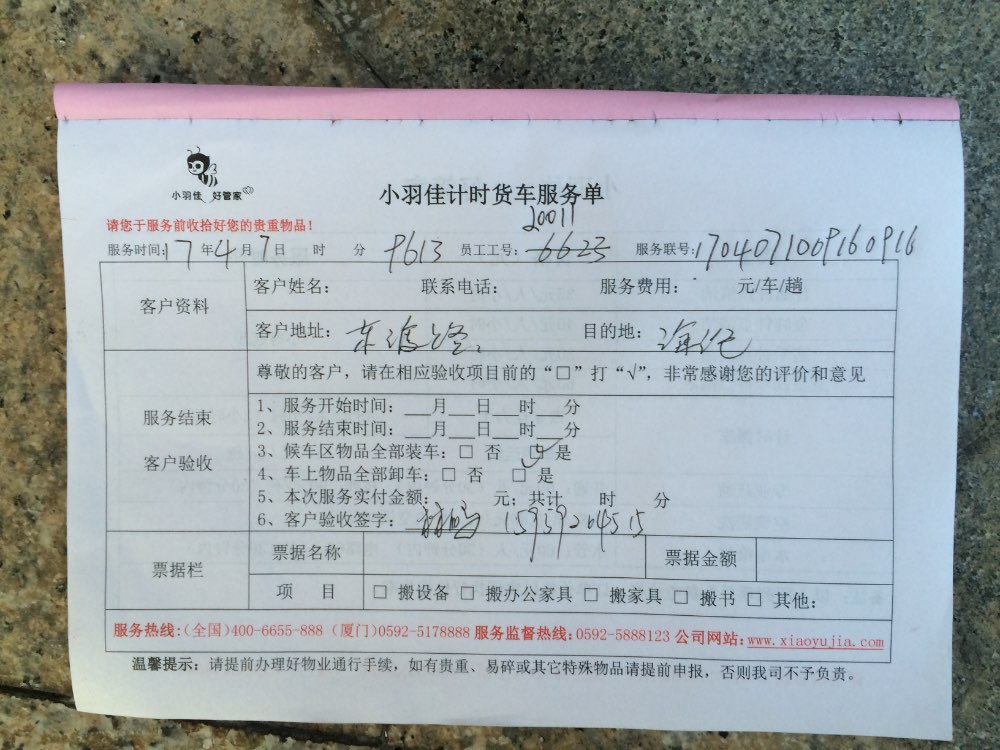 小羽佳 好管家
小羽佳计时货车服务单
请您于服务前收拾好您的贵重物品!
20011
服务时间:17年4月7日 时 分 9613 员工工号:6623 服务联号:1704071009160916
客户资料
客户姓名: 联系电话: 服务费用: 元/车/趟
客户地址:东 目的地:海
服务结束
客户验收
尊敬的客户,请在相应验收项目前的“□”打“√”,非常感谢您的评价和意见
1、服务开始时间:___月___日___时___分
2、服务结束时间:___月___日___时___分
3、候车区物品全部装车:□ 否 ☑ 是
4、车上物品全部卸车:□ 否 □ 是
5、本次服务实付金额: 元;共计 时 分
6、客户验收签字: 15959204515
票据栏
票据名称 票据金额
项 目 □ 搬设备 □ 搬办公家具 □ 搬家具 □ 搬书 □ 其他:
服务热线:(全国)400-6655-888 (厦门)0592-5178888 服务监督热线:0592-5888123 公司网站:www.xiaoyujia.com
温馨提示:请提前办理好物业通行手续,如有贵重、易碎或其它特殊物品请提前申报,否则我司不予负责。